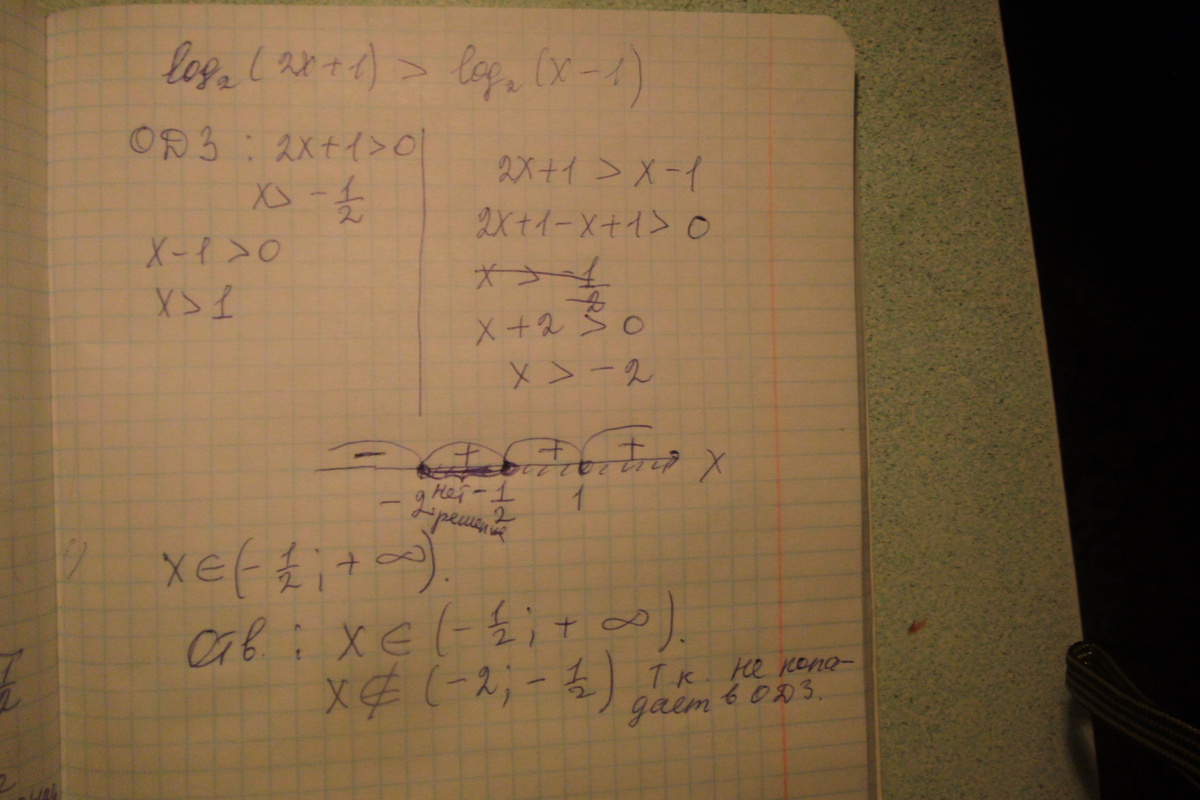 log₂(2x+1) > log₂(x-1)
ОДЗ : 2x+1>0
x> -1/2
x-1>0
x>1
2x+1 > x-1
2x+1-x+1> 0
x > -1/2
x+2 > 0
x > -2
- + + + x
-2 нет решения -1/2 1
x∈(-1/2; +∞).
Отв. : x∈(-1/2; +∞).
x∉(-2; -1/2) т.к. не попа-
дает в ОДЗ.